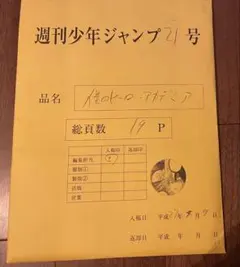 週刊少年ジャンプ 21 号
品名 僕のヒーローアカデミア
総頁数 19 P
入稿日 返却日
編集担当
製版(1)
製版(2)
入稿日 平成 年 月 日
返却日 平成 年 月 日